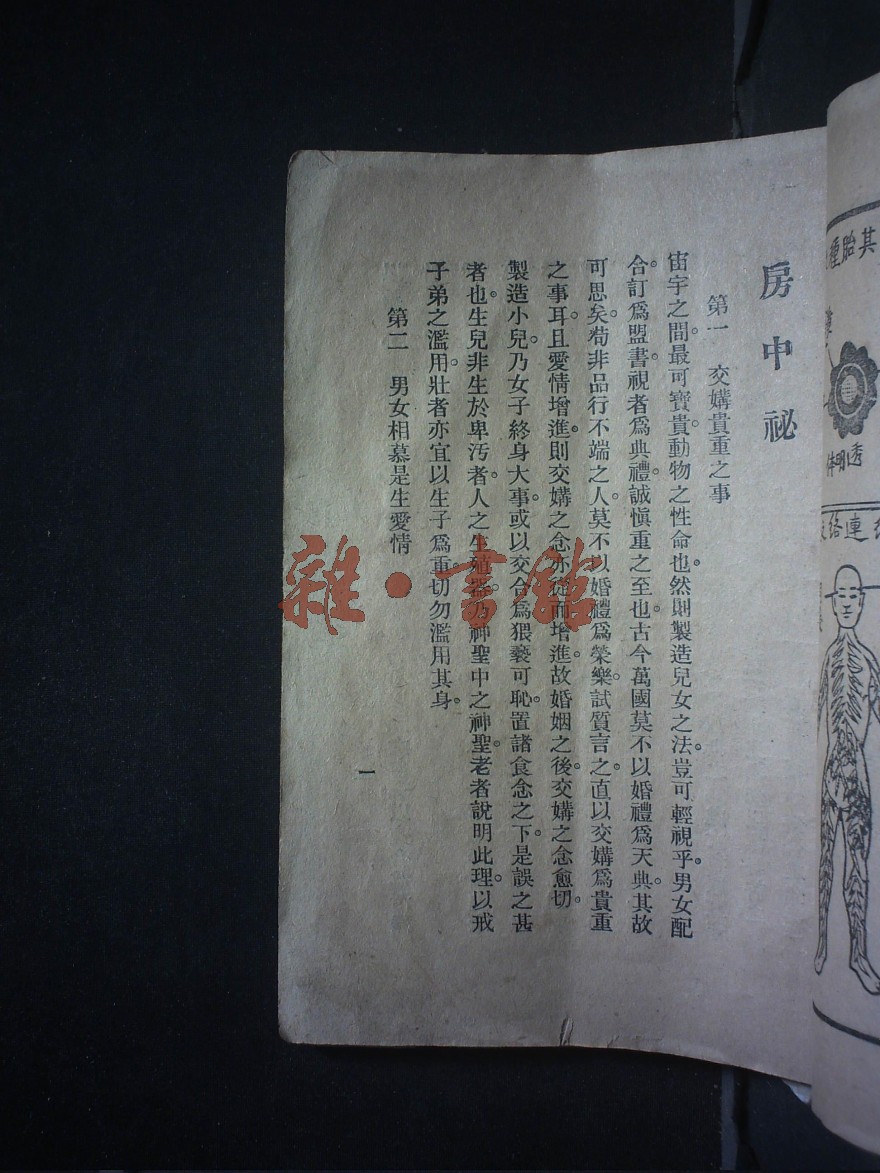 房中祕
第一　交媾貴重之事
宙宇之間。最可寶貴。動物之性命也。然則製造兒女之法。豈可輕視乎。男女配
合。訂爲盟書。視者爲典禮。誠愼重之至也。古今萬國莫不以婚禮爲天典。其故
可思矣。苟非品行不端之人。莫不以婚禮爲榮樂。試質言之。直以交媾爲貴重
之事耳。且愛情增進。則交媾之念亦從而增進。故婚姻之後。交媾之念愈切。
製造小兒。乃女子終身大事。或以交合爲猥褻可恥。置諸食念之下。是誤之甚
者也。生兒非生於卑汚者。人之生殖器。乃神聖中之神聖。老者說明此理。以戒
子弟之濫用。壯者亦宜以生子爲重。切勿濫用其身。
第二　男女相慕是生愛情
一
其胎種
透明体
連絡
雜·書館